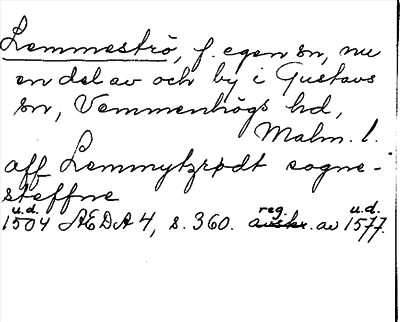 Lemmeströ, f. egen sn, nu
en del av och by i Gustavs
sn, Vemmenhögs hd,
Malm. l.
aff Lemmytzrødt sogne-
steffne
u.d. reg. u.d.
1504 ÆDA 4, s. 360. avskr. av 1577.